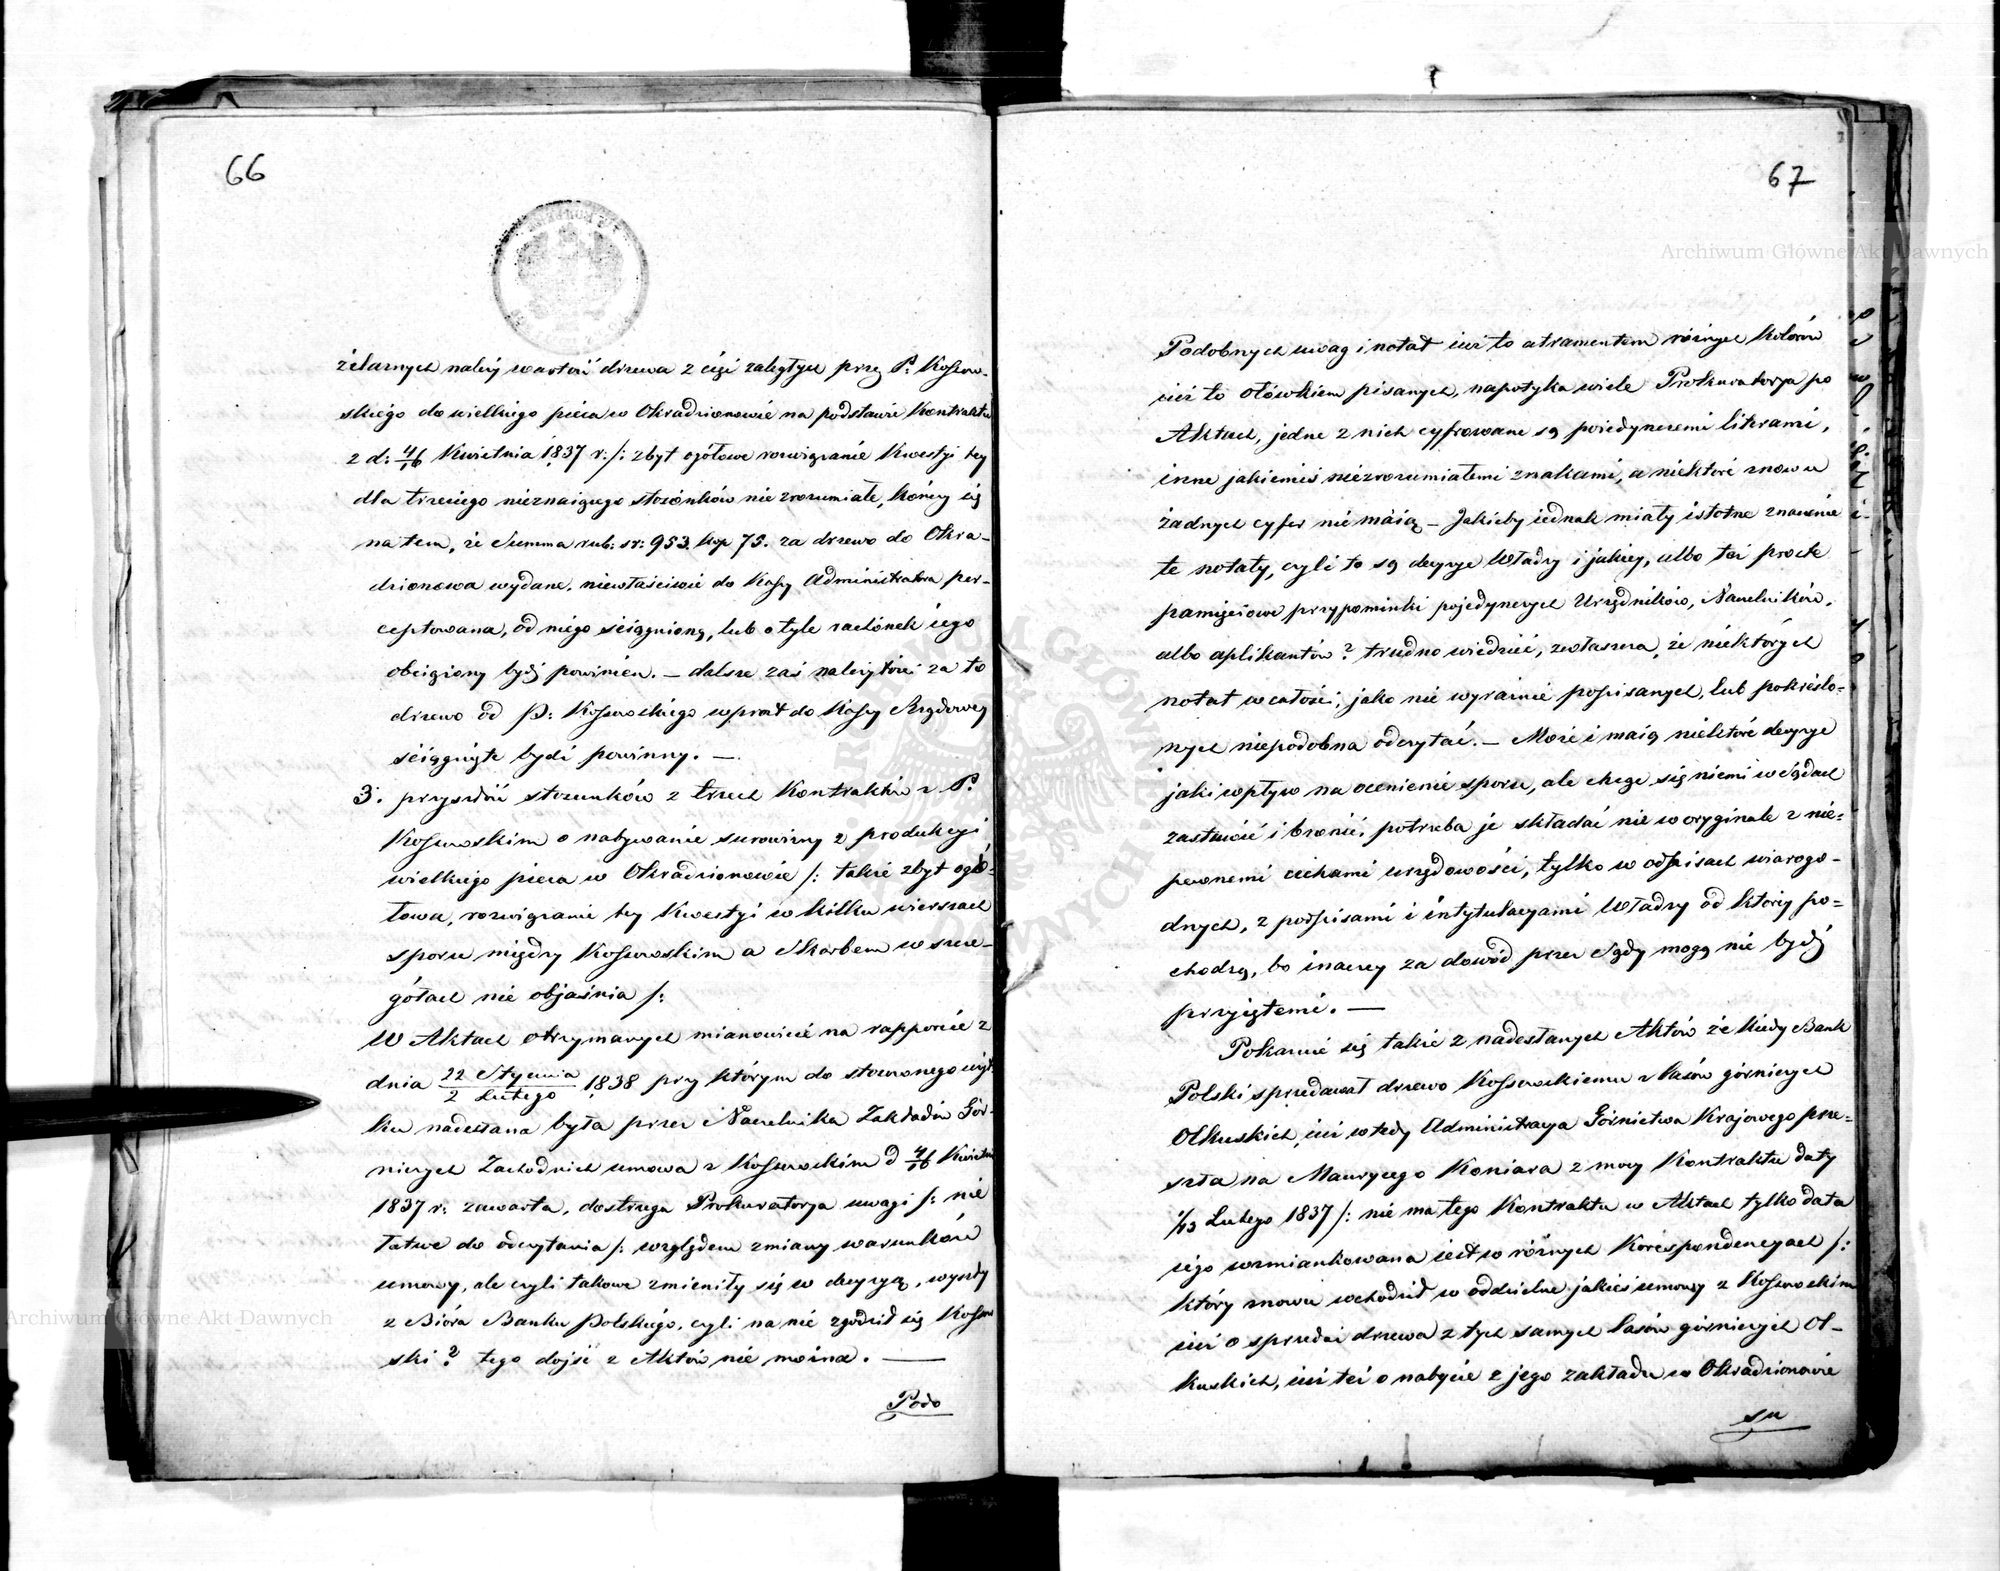 66
żelaznych należy wartość drzewa z cięć zaległych przez P: Kossow-
skiego do wielkiego pieca w Okradzionowie na podstawie Kontraktu
z d: 4/16 Kwietnia 1837 r: /: zbyt ogółowe rozwiązanie Kwestyi tey
dla trzeciego nieznaiącego stosónków nie zrozumiałe, kończy się
na tem, że Summa rub: sr: 953. kop 73. za drzewo do Okra-
dzionowa wydane, niewłaściwie do Kassy Administratora per-
ceptowana, od niego ściągnioną, lub o tyle rachónek iego
obciążony bydź powinien. — dalsze zaś należytości za to
drzewo od P: Kossowskiego wprost do Kassy Rządowey
ściągnięte bydź powinny. —
3. przyszłość stosunków z trzech Kontraktów z P.
Kossowskim o nabywanie surowizny z produkcyi
wielkiego pieca w Okradzionowie /: także zbyt ogó-
łowa, rozwiązanie tey Kwestyi w kilku wierszach
sporu między Kossowskim a Skarbem w szcze-
gółach nie objaśnia /:
W Aktach otrzymanych mianowicie na rapporcie z
dnia 22 Stycznia / 2 Lutego 1838 przy którym do stosownego użyt-
ku nadesłana była przez Naczelnika Zakładów Gór-
niczych Zachodnich umowa z Kossowskim d 4/16 Kwietnia
1837 r: zawarta, dostrzega Prokuratorya uwagi /: nie
łatwe do odczytania /: względem zmiany warunków
umowy, ale czyli takowe zmieniły się w decyzyą, wyszły
z Bióra Banku Polskiego, czyli na nie zgodził się Kossow
ski? tego dojść z Aktów nie można. —
Podo
67
Podobnych uwag i notat iuż to atramentem różnych Kolorów
iuż to ołówkiem pisanych, napotyka wiele Prokuratorya po
Aktach, jedne z nich cyfrowane są poiedynczemi literami,
inne jakiemiś niezrozumiałemi znakami, a niektóre znowu
żadnych cyfer nie máią — Jakieby iednak miały istotne znaczenie
te notaty, czyli to są decyzye Władzy i jakiey, albo też proste
pamięciowe przypominki pojedynczych Urzędników, Naczelników,
albo aplikantów? trudno wiedzieć, zwłaszcza, że niektórych
notat w całości, jako nie wyraźnie popisanych, lub pokreślo-
nych niepodobna odczytać. — Może i maią niektóre decyzye
jaki wpływ na ocenienie sporu, ale chcąc się niemi w Sądach
zastawić i bronić, potrzeba je składać nie w oryginale z nie-
pewnemi cechami urzędowości, tylko w odpisach wiarogo-
dnych, z podpisami i intytulacyami Władzy od którey po-
chodzą, bo inaczey za dowód przez Sądy mogą nie bydź
przyjętemi. —
Pokazuie się także z nadesłanych Aktów że kiedy Bank
Polski sprzedawał drzewo Kossowskiemu z lasów górniczych
Olkuskich, iuż wtedy Administracya Górnictwa Krajowego prze-
szła na Maurycego Koniara z mocy Kontraktu daty
1/13 Lutego 1837 /: nie ma tego Kontraktu w Aktach tylko data
iego wzmiankowana iest w różnych Korespondencyach /:
który znowu wchodził w oddzielne jakieś umowy z Kossowskim
iuż o sprzedaż drzewa z tych samych lasów górniczych Ol-
kuskich, iuż też o nabycie z jego zakładu w Okradzionowie
su
Archiwum Główne Akt Dawnych
Archiwum Główne Akt Dawnych